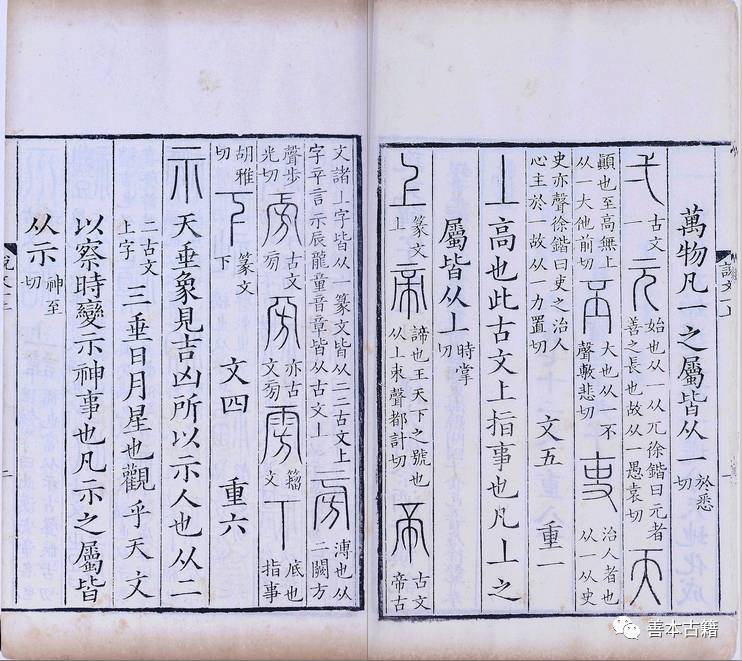 萬物凡一之屬皆从一於悉切
弌古文一元始也从一从兀徐鍇曰元者善之長也故从一愚袁切天
顚也至高無上从一大他前切丕大也从一不聲敷悲切吏治人者也从一从史
史亦聲徐鍇曰吏之治人心主於一故从一力置切 文五 重一
丄高也此古文上指事也凡丄之
屬皆从丄時掌切
上篆文上帝諦也王天下之號也从丄朿聲都計切帝古文帝古
文諸丄字皆从一篆文皆从二二古文上字䇂言示辰龍童音章皆从古文丄旁溥也从二闕方
聲步光切旁古文旁亦古文旁旁籒文丅底也指事
胡雅切下篆文下 文四 重六
示天垂象見吉凶所以示人也从二
二古文上字三垂日月星也觀乎天文
以察時變示神事也凡示之屬皆
从示神至切
善本古籍